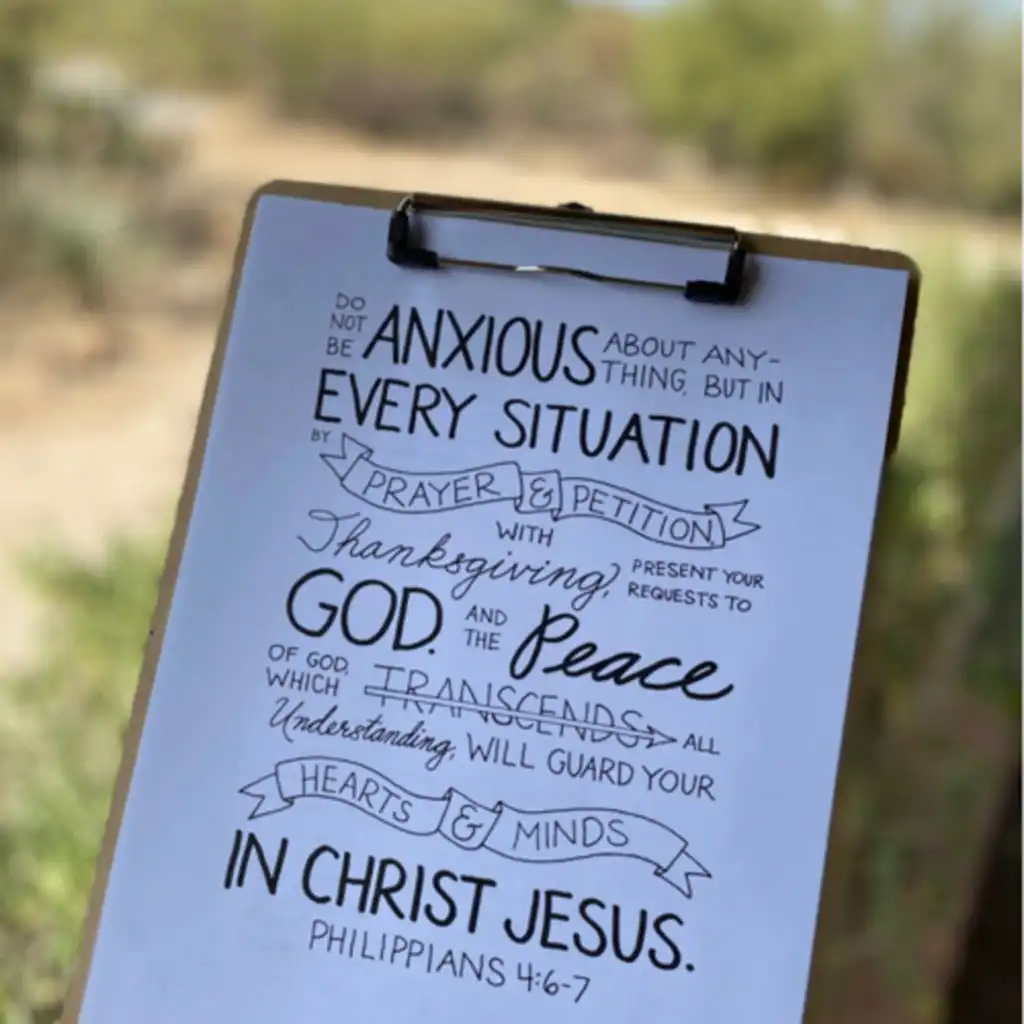 DO NOT BE ANXIOUS ABOUT ANY-
THING, BUT IN
EVERY SITUATION
BY PRAYER & PETITION,
WITH
Thanksgiving, PRESENT YOUR
REQUESTS TO
GOD. AND THE Peace
OF GOD,
WHICH TRANSCENDS ALL
Understanding, WILL GUARD YOUR
HEARTS & MINDS
IN CHRIST JESUS.
PHILIPPIANS 4:6-7